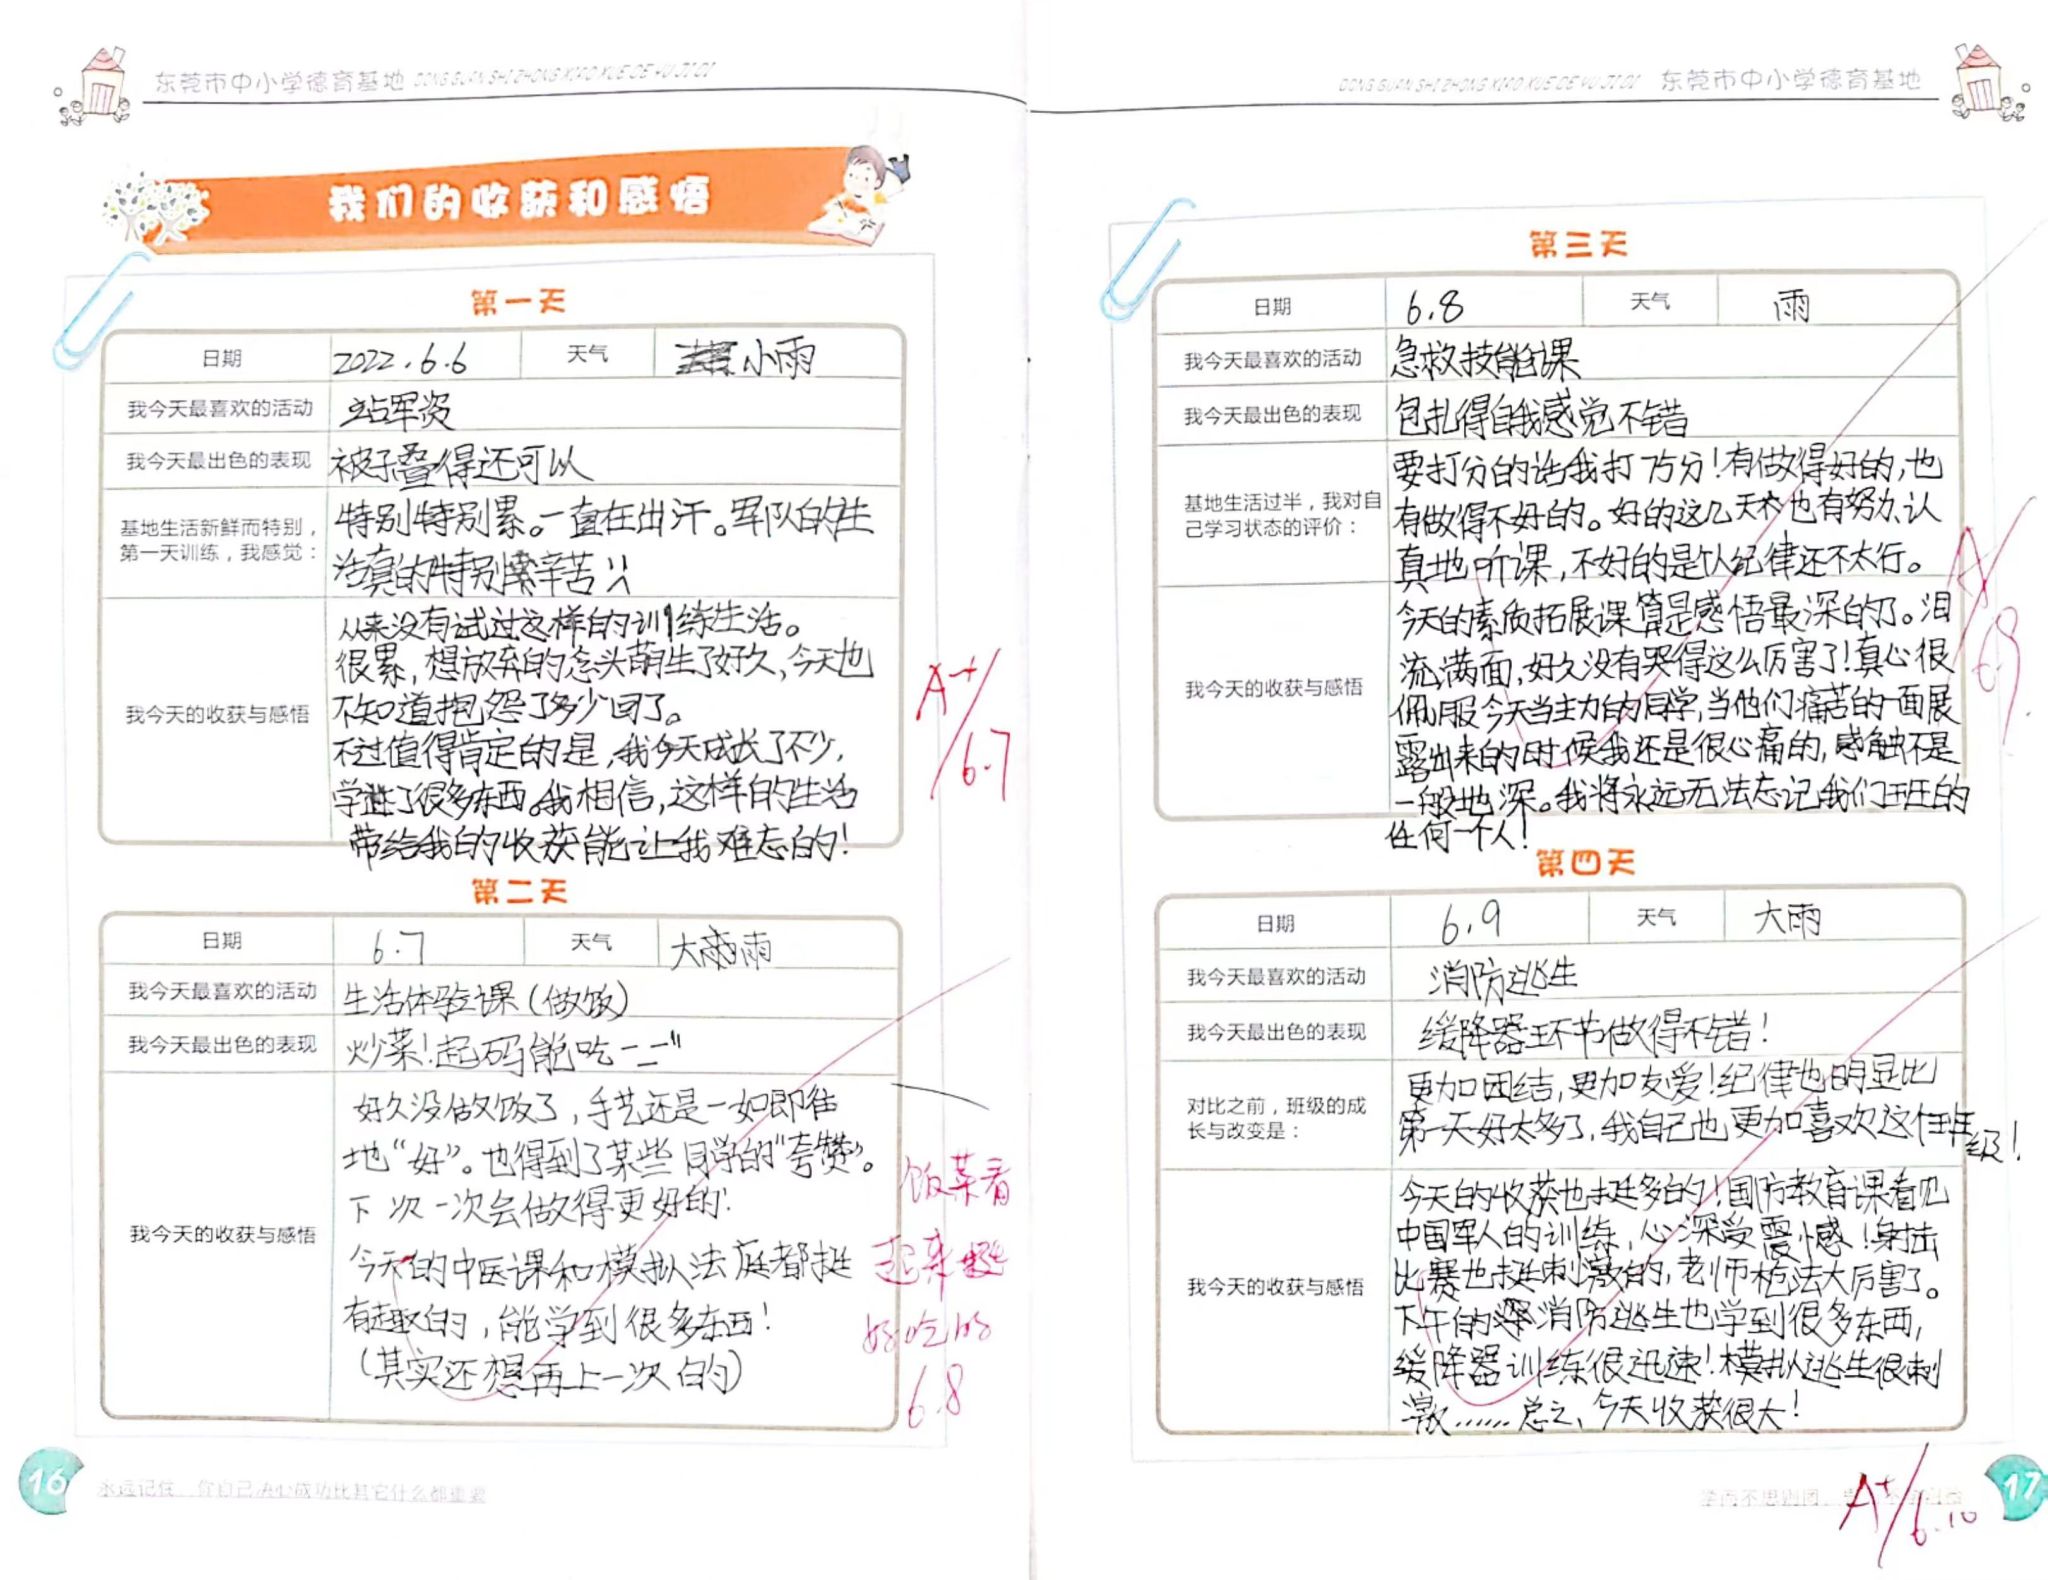 东莞市中小学德育基地 DONG GUAN SHI ZHONG XIAO XUE DE YU JI DI
我们的收获和感悟
第一天
日期 2022.6.6 天气 小雨
我今天最喜欢的活动 站军姿
我今天最出色的表现 被子叠得还可以
基地生活新鲜而特别，
第一天训练，我感觉：
特别特别累。一直在出汗。军队的生
活真的特别辛苦
我今天的收获与感悟
从来没有试过这样的训练生活。
很累，想放弃的念头萌生了好久、今天也
不知道抱怨了多少回了。
不过值得肯定的是，我今天成长了不少，
学进了很多东西。我相信，这样的生活
带给我的收获能让我难忘的！
A+/6.7
第二天
日期 6.7 天气 大雨
我今天最喜欢的活动 生活体验课(做饭)
我今天最出色的表现 炒菜！起码能吃
我今天的收获与感悟
好久没做饭了，手艺还是一如即往
地“好”。也得到了某些同学的“夸赞”。
下次一次会做得更好的!
今天的中医课和模拟法庭都挺
有趣的，能学到很多东西！
(其实还想再上一次的)
饭菜看
起来挺
好吃的
6.8
16
永远记住，你自己决心成功比其它什么都重要
DONG GUAN SHI ZHONG XIAO XUE DE YU JI DI 东莞市中小学德育基地
第三天
日期 6.8 天气 雨
我今天最喜欢的活动 急救技能课
我今天最出色的表现 包扎得自我感觉不错
基地生活过半，我对自
己学习状态的评价：
要打分的话我打75分！有做得好的，也
有做得不好的。好的这几天也有努力、认
真地听课，不好的是纪律还不太行。
我今天的收获与感悟
今天的素质拓展课算是感悟最深的了。泪
流满面，好久没有哭得这么厉害了！真心很
佩服今天当主力的同学，当他们痛苦的一面展
露出来的时候我还是很心痛的，感触不是
一般地深。我将永远无法忘记我们班的
任何一个人！
A+/6.9
第四天
日期 6.9 天气 大雨
我今天最喜欢的活动 消防逃生
我今天最出色的表现 缓降器环节做得不错！
对比之前，班级的成
长与改变是：
更加团结，更加友爱！纪律也明显比
第一天好太多了，我自己也更加喜欢这个班级！
我今天的收获与感悟
今天的收获也挺多的！国防教育课看见
中国军人的训练，心深受震憾！射击
比赛也挺刺激的，老师枪法太厉害了。
下午的消防逃生也学到很多东西，
缓降器训练很迅速！模拟逃生很刺
激……总之、今天收获很大！
A+/6.10
17